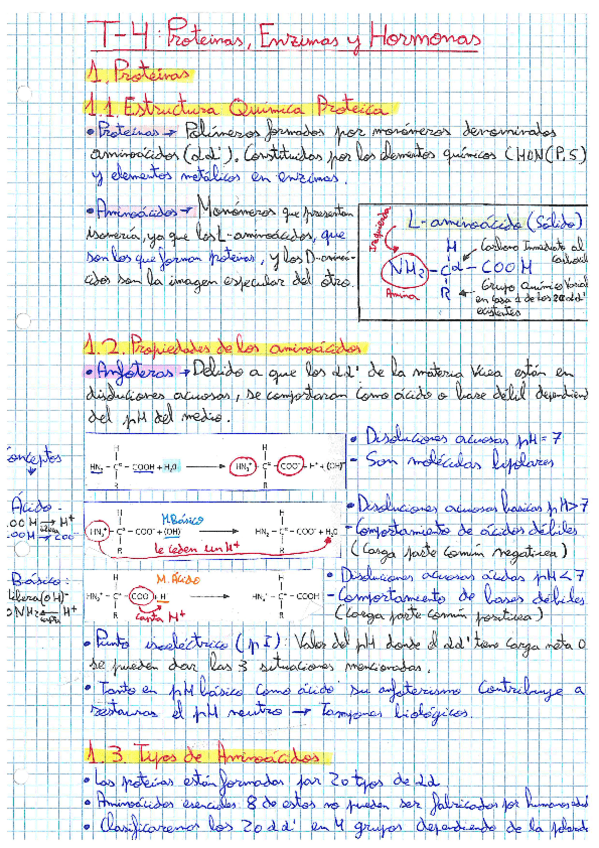 T-4: Proteínas, Enzimas y Hormonas
1. Proteínas
1.1. Estructura Química Proteica
• Proteínas → Polímeros formados por monómeros denominados
aminoácidos (aa'). Constituidos por los elementos químicos CHON(P,S)
y elementos metálicos en enzimas.
• Aminoácidos → Monómeros que presentan
isomería, ya que los L-aminoácidos, que
son los que forman proteínas, y los D-aminoá-
cidos son la imagen especular del otro.
L-aminoácido (Sólido)
H
NH₂ - Cα - COOH
R
Amina
Carbono Inmediato al
Grupo Químico
en base a de los 20 aa'
existentes
1.2. Propiedades de los aminoácidos
• Anfóteros → Debido a que los aa' de la materia viva están en
disoluciones acuosas, se comportaran como ácido o base débil dependiend
del pH del medio.
• Disoluciones acuosas pH = 7
- Son moléculas bipolares
H
HN₂ - C* - COOH + H₂O → HN₃⁺ - C* - COO⁻ + H⁺ + (OH)⁻
R
onceptos
• Disoluciones acuosas basicas pH > 7
- Comportamiento de ácidos débiles
(Carga parte común negativa)
Ácido:
M. Básico
H
HN₃⁺ - C* - COO⁻ + (OH)⁻ → HN₂ - C* - COO⁻ + H₂O
R
le ceden un H⁺
• Disoluciones acuosas ácidas pH < 7
- Comportamiento de bases débiles
(Carga parte común positiva)
Básico:
M. Ácido
H
HN₃⁺ - C* - COO⁻ + H → HN₃⁺ - C* - COOH
R
capta H⁺
• Punto isoeléctrico (pI): Valor del pH donde el aa' tiene carga neta 0
se pueden dar las 3 situaciones mencionadas.
• Tanto en pH básico como ácido su anfoterismo contribuye a
restaurar el pH neutro → Tampones biológicos.
1.3. Tipos de Aminoácidos
• Las proteínas están formadas por 20 tipos de aa
• Aminoácidos esenciales 8 de estos no pueden ser fabricados por humanos
• Clasificaremos los 20 aa' en 4 grupos dependiendo de la